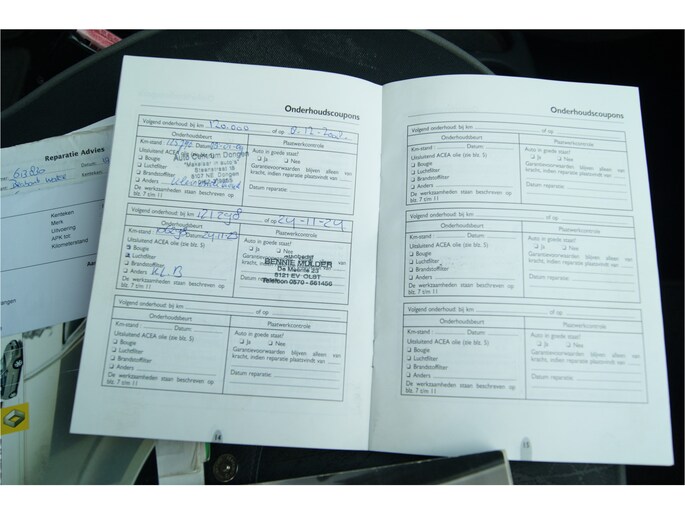 Reparatie Advies
Kenteken
Merk
Uitvoering
APK tot
Kilometerstand
Onderhoudscoupons
Volgend onderhoud: bij km 120.000 of op
Onderhoudsbeurt
Plaatwerkcontrole
Km-stand : Datum
Uitsluitend ACEA olie (zie blz. 5)
Bougie
Luchtfilter
Brandstoffilter
Anders
De werkzaamheden staan beschreven op
blz. 7 t/m 11
Auto in goede staat?
Ja Nee
Garantievoorwaarden blijven alleen van
kracht, indien reparatie plaatsvindt van
Datum reparatie:
Auto Centrum Dongen
"Makelaar in auto's"
Volgend onderhoud: bij km 121298 of op 24-11-24
Onderhoudsbeurt
Plaatwerkcontrole
Km-stand Datum
Uitsluitend ACEA olie (zie blz. 5)
Bougie
Luchtfilter
Brandstoffilter
Anders KL.B
De werkzaamheden staan beschreven op
blz. 7 t/m 11
Auto in goede staat?
Ja Nee
BENNIE MULDER
De Meente 23
8121 EV OLST
Telefoon 0570 - 561456
Volgend onderhoud: bij km of op
Onderhoudsbeurt
Plaatwerkcontrole
Km-stand : Datum
Uitsluitend ACEA olie (zie blz. 5)
Bougie
Luchtfilter
Brandstoffilter
Anders
De werkzaamheden staan beschreven op
blz. 7 t/m 11
Auto in goede staat?
Ja Nee
Garantievoorwaarden blijven alleen van
kracht, indien reparatie plaatsvindt van
Datum reparatie:
14
Onderhoudscoupons
Volgend onderhoud: bij km of op
Onderhoudsbeurt
Plaatwerkcontrole
Km-stand : Datum
Uitsluitend ACEA olie (zie blz. 5)
Bougie
Luchtfilter
Brandstoffilter
Anders
De werkzaamheden staan beschreven op
blz. 7 t/m 11
Auto in goede staat?
Ja Nee
Garantievoorwaarden blijven alleen van
kracht, indien reparatie plaatsvindt van
Datum reparatie:
Volgend onderhoud: bij km of op
Onderhoudsbeurt
Plaatwerkcontrole
Km-stand : Datum
Uitsluitend ACEA olie (zie blz. 5)
Bougie
Luchtfilter
Brandstoffilter
Anders
De werkzaamheden staan beschreven op
blz. 7 t/m 11
Auto in goede staat?
Ja Nee
Garantievoorwaarden blijven alleen van
kracht, indien reparatie plaatsvindt van
Datum reparatie:
Volgend onderhoud: bij km of op
Onderhoudsbeurt
Plaatwerkcontrole
Km-stand : Datum
Uitsluitend ACEA olie (zie blz. 5)
Bougie
Luchtfilter
Brandstoffilter
Anders
De werkzaamheden staan beschreven op
blz. 7 t/m 11
Auto in goede staat?
Ja Nee
Garantievoorwaarden blijven alleen van
kracht, indien reparatie plaatsvindt van
Datum reparatie:
15